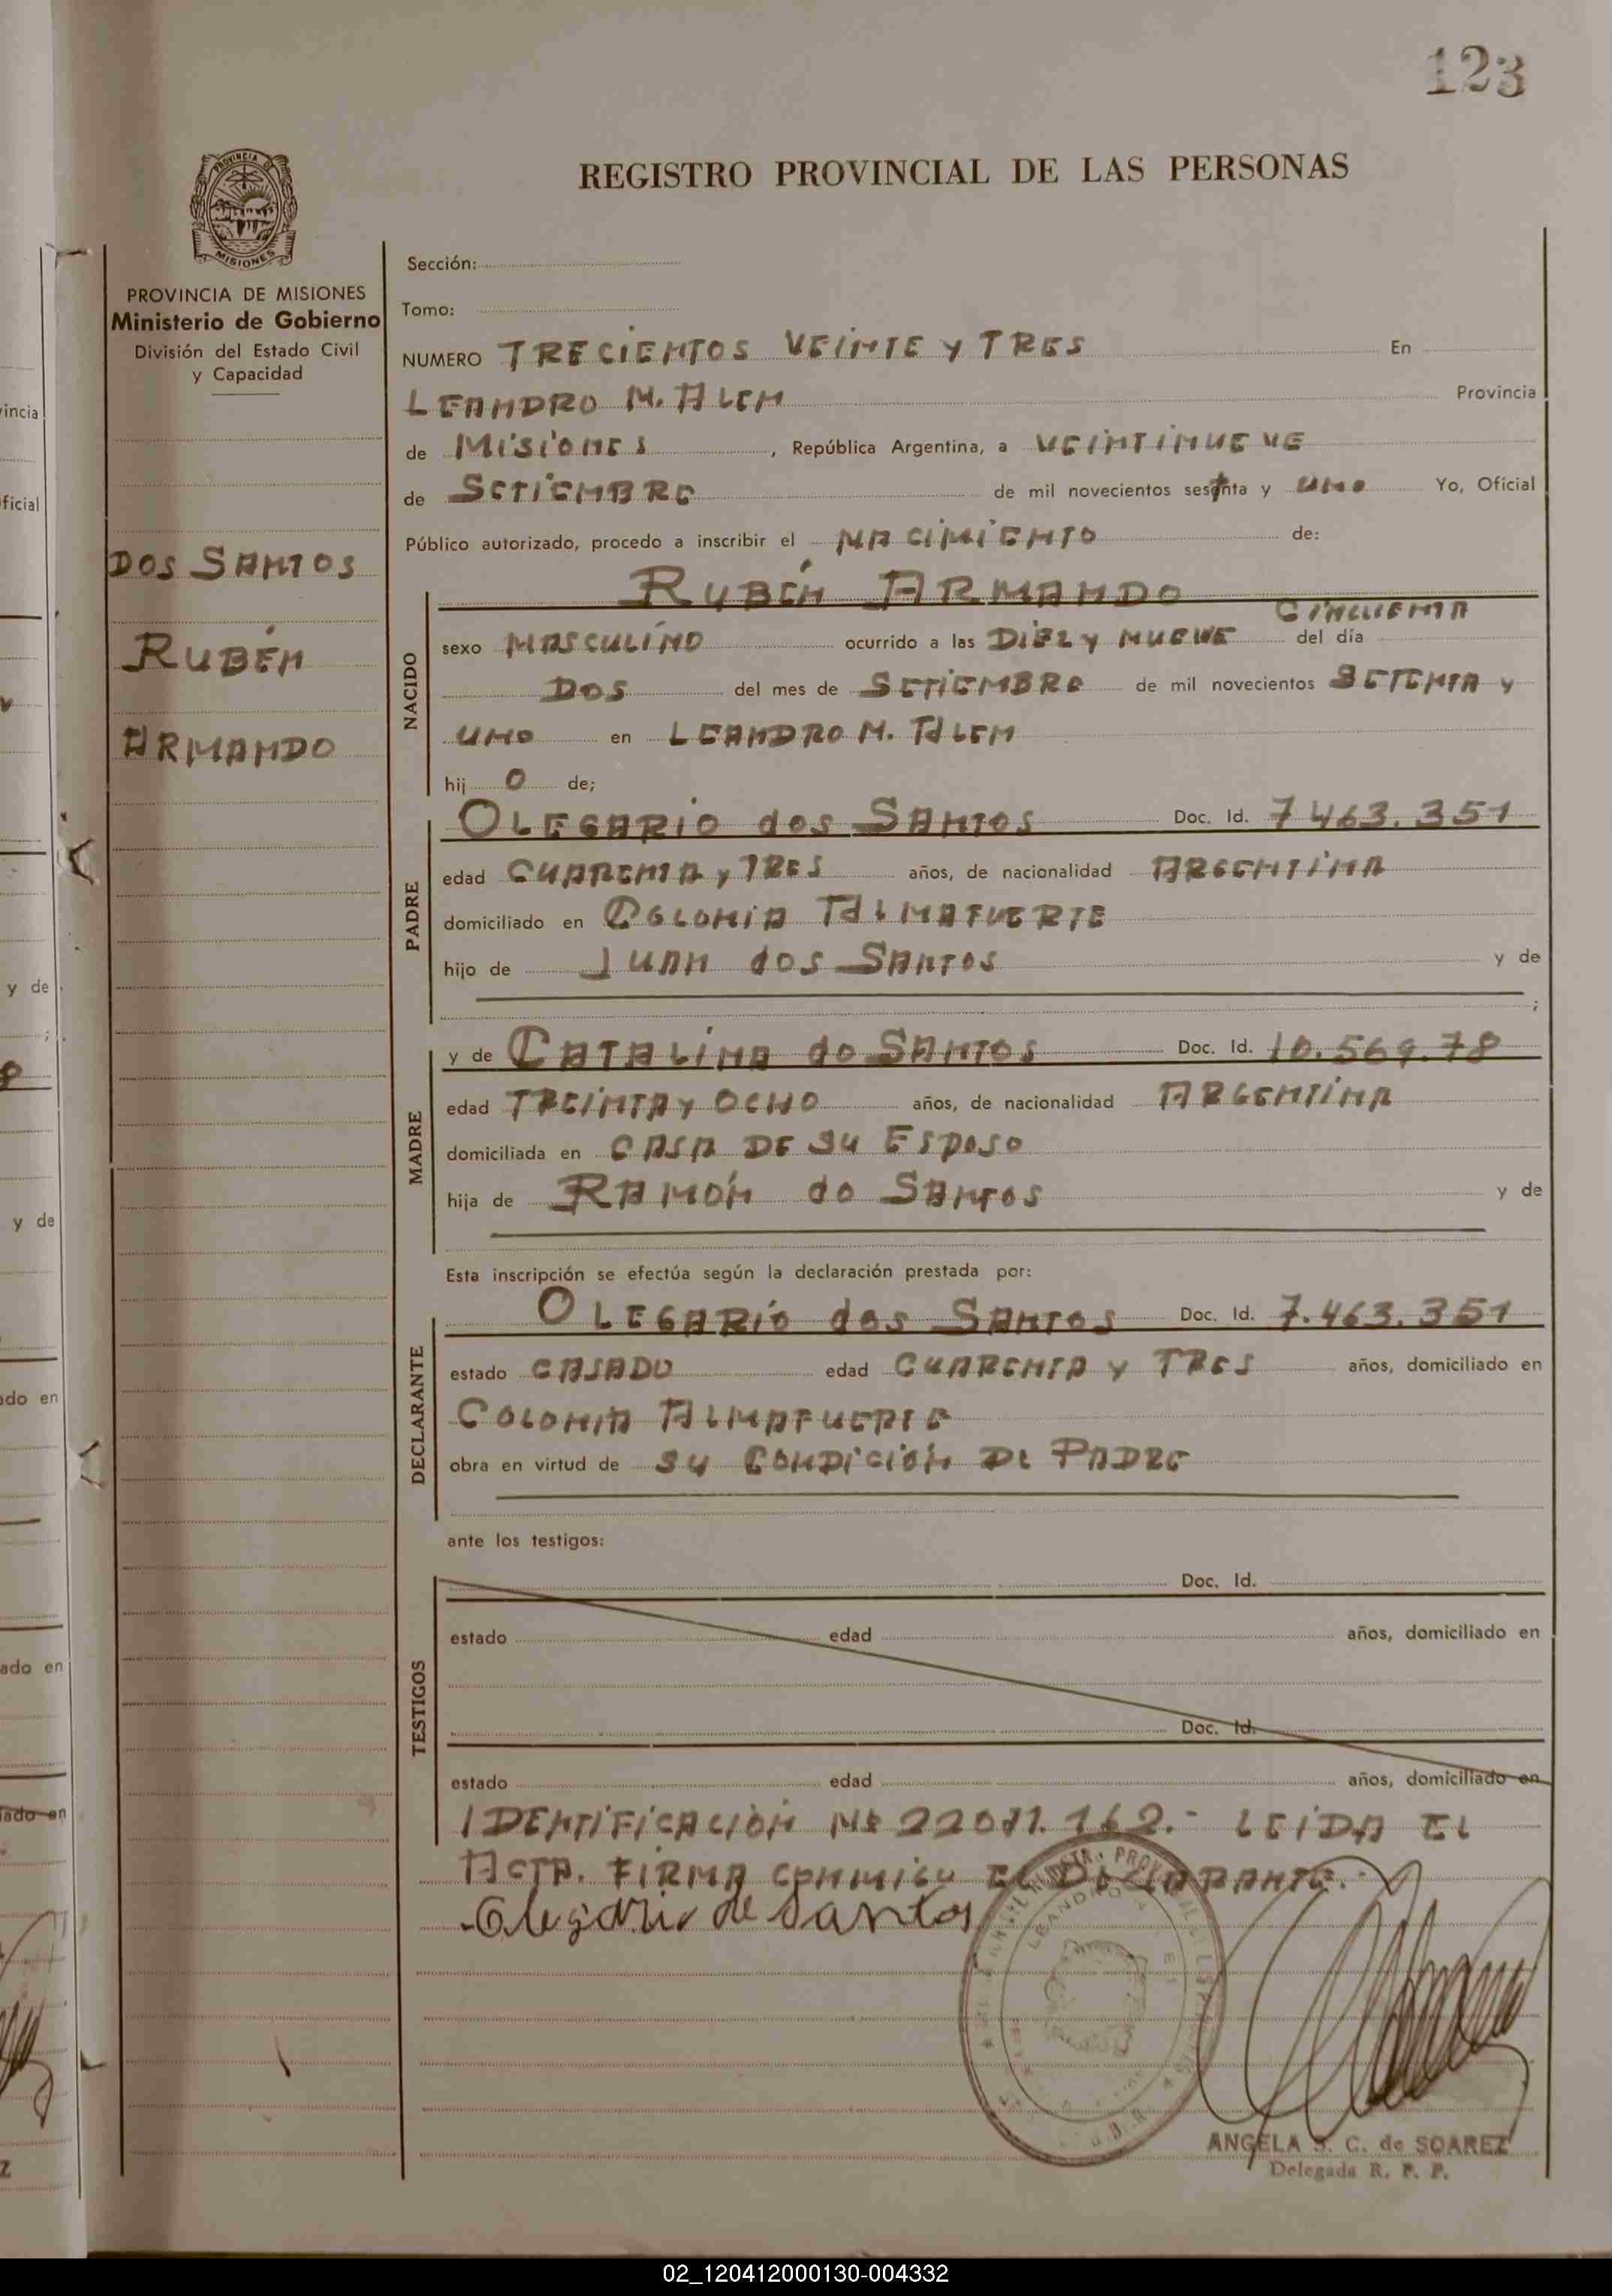 123
REGISTRO PROVINCIAL DE LAS PERSONAS
PROVINCIA DE
MISIONES
PROVINCIA DE MISIONES
Ministerio de Gobierno
División del Estado Civil
y Capacidad
DOS SANTOS
RUBÉN
ARMANDO
Sección:
Tomo:
NUMERO TRECIENTOS VEINTE Y TRES En
LEANDRO N. ALEM Provincia
de MISIONES, República Argentina, a VEINTINUEVE
de SETIEMBRE de mil novecientos sesenta y UNO Yo, Oficial
Público autorizado, procedo a inscribir el NACIMIENTO de:
RUBÉN ARMANDO
CINCUENTA
NACIDO
sexo MASCULINO ocurrido a las DIEZ Y NUEVE del día
DOS del mes de SETIEMBRE de mil novecientos SETENTA Y
UNO en LEANDRO N. ALEM
hij O de;
PADRE
OLEGARIO dos SANTOS Doc. Id. 7463.351
edad CUARENTA y TRES años, de nacionalidad ARGENTINA
domiciliado en COLONIA ALMAFUERTE
hijo de JUAN dos SANTOS y de
;
MADRE
y de CATALINA do SANTOS Doc. Id. 10.569.78
edad TREINTA Y OCHO años, de nacionalidad ARGENTINA
domiciliada en CASA DE SU ESPOSO
hija de RAMÓN do SANTOS y de
Esta inscripción se efectúa según la declaración prestada por:
DECLARANTE
OLEGARIO dos SANTOS Doc. Id. 7.463.351
estado CASADO edad CUARENTA Y TRES años, domiciliado en
COLONIA ALMAFUERTE
obra en virtud de SU CONDICIÓN DE PADRE
ante los testigos:
TESTIGOS
Doc. Id.
estado edad años, domiciliado en
Doc. Id.
estado edad años, domiciliado en
IDENTIFICACIÓN Nº 22011.162.- LEIDA EL
ACTA. FIRMA CONMIGO EL DECLARANTE.-
Olegario de Santos
LEANDRO
ANGELA S. C. de SOAREZ
Delegada R. P. P.
vincia
ficial
y de
;
y de
ado en
ado en
iado en
02_120412000130-004332